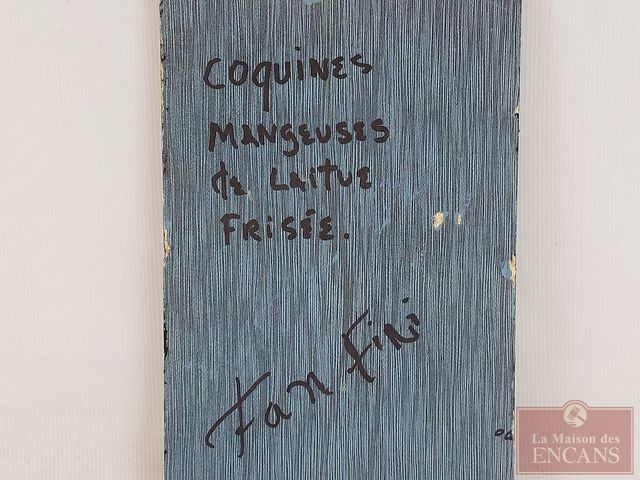 COQUINES
MANGEUSES
de LAITUE
FRISÉE.
Fan Fini
La Maison des
ENCANS